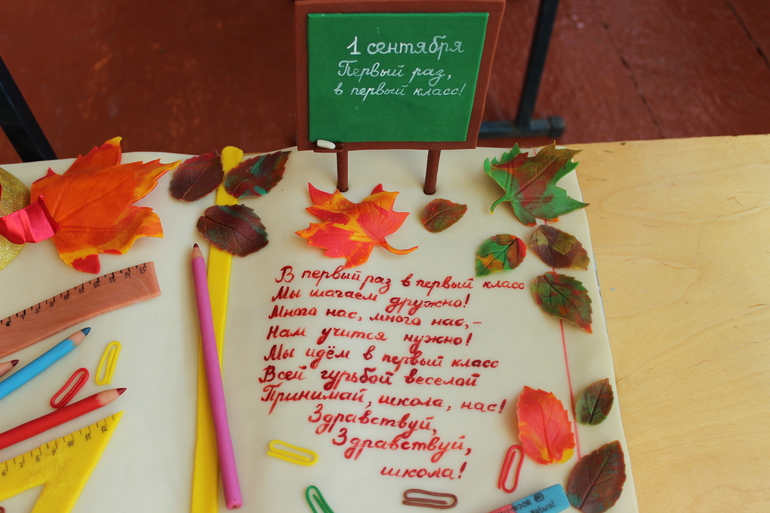 1 сентября
Первый раз,
в первый класс!
В первый раз в первый класс
Мы шагаем дружно!
Много нас, много нас,-
Нам учится нужно!
Мы идём в первый класс
Всей гурьбой веселой
Принимай, школа, нас!
Здравствуй,
Здравствуй,
школа!